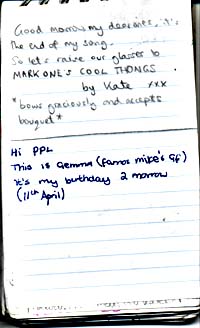 Good morrow my dear ones, it's
the end of my song.
So let's raise our glasses to
MARK ONE'S COOL THONGS
by Kate xxx
*bows graciously and accepts
bouquet*
Hi PPL
This is Gemma (famos mike's gf)
it's my birthday 2 morrow
(11th April)